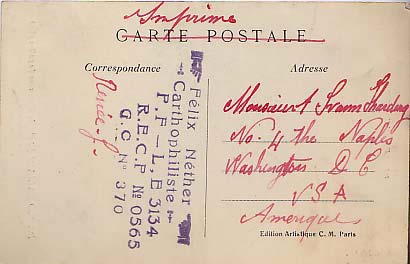 Imprimé
CARTE POSTALE
Correspondance
Adresse
Félix Néther
Carthophiliste
P.F - L,E 3134
R.E.C.F No 0565
G.C No 370
Renée-J.
Monsieur
No. 4 the Naples
Washington D C
USA
Amerique
Edition Artistique C. M. Paris